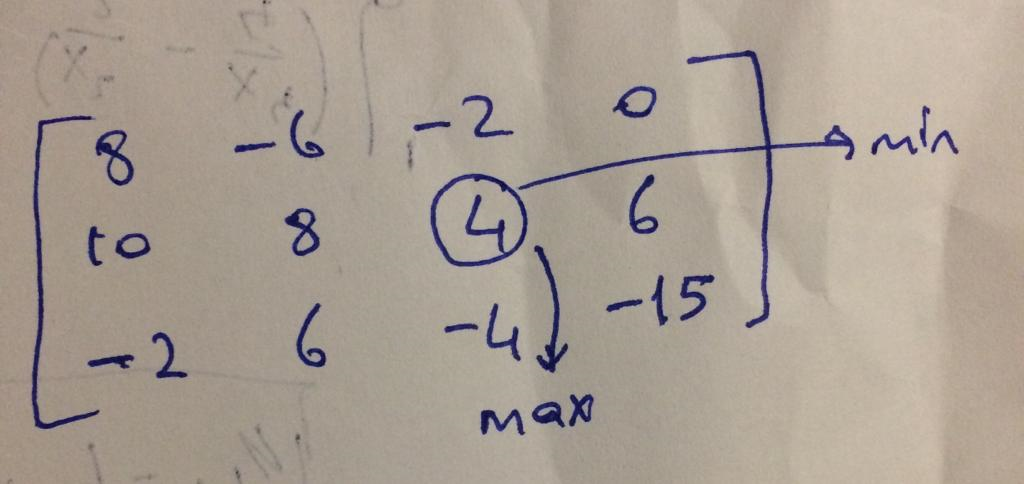 8 -6 -2 0
10 8 4 6
-2 6 -4 -15
min
max